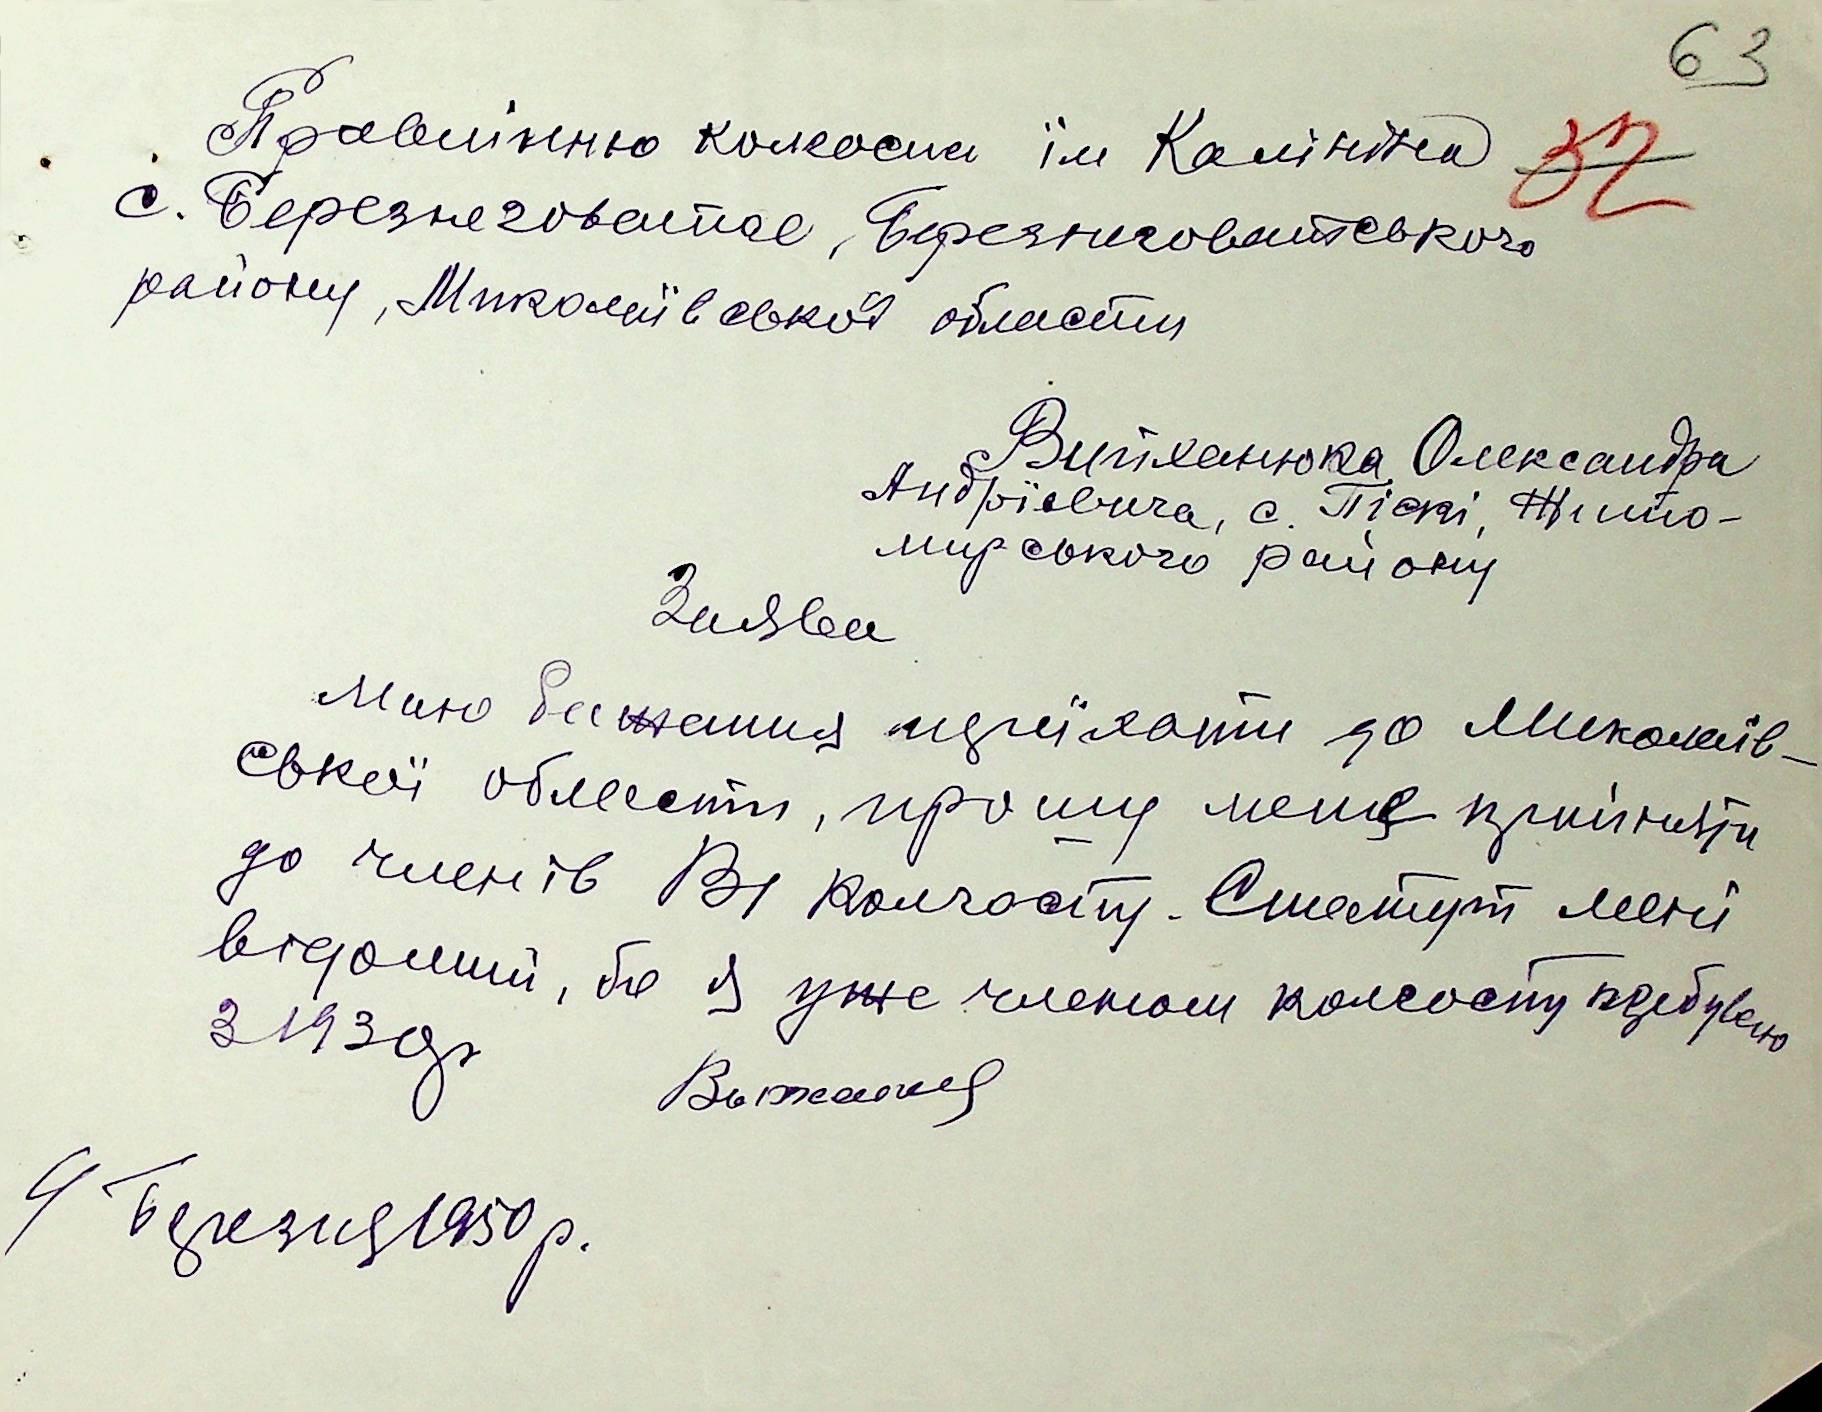 63
32
Правлінню колгоспа ім Калініна
с. Березнеговатое, Березнеговатського
району, Миколаївської области
Олександра
Андрієвича, с. Піскі, Жито-
мирського району
Заява
Маю бажання переїхати до Миколаїв-
ської области, прошу мене прийняти
до членів В/ колгоспу. Статут мені
відомий, бо я уже членом колгоспу перебуваю
з 1930 р
9 Березня 1950 р.